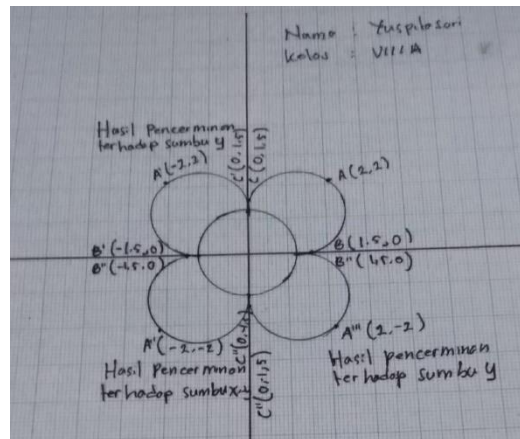 Nama : Yuspitasari
Kelas : VIII A
Hasil Pencerminan
terhadap sumbu y
A'(-2,2)
C'(0,1.5)
C(0,1.5)
A(2,2)
B'(-1.5,0)
B(1.5,0)
B''(-1.5.0)
A''(-2,-2)
A'''(2,-2)
Hasil Pencerminan
terhadap sumbu x
Hasil pencerminan
terhadap sumbu y